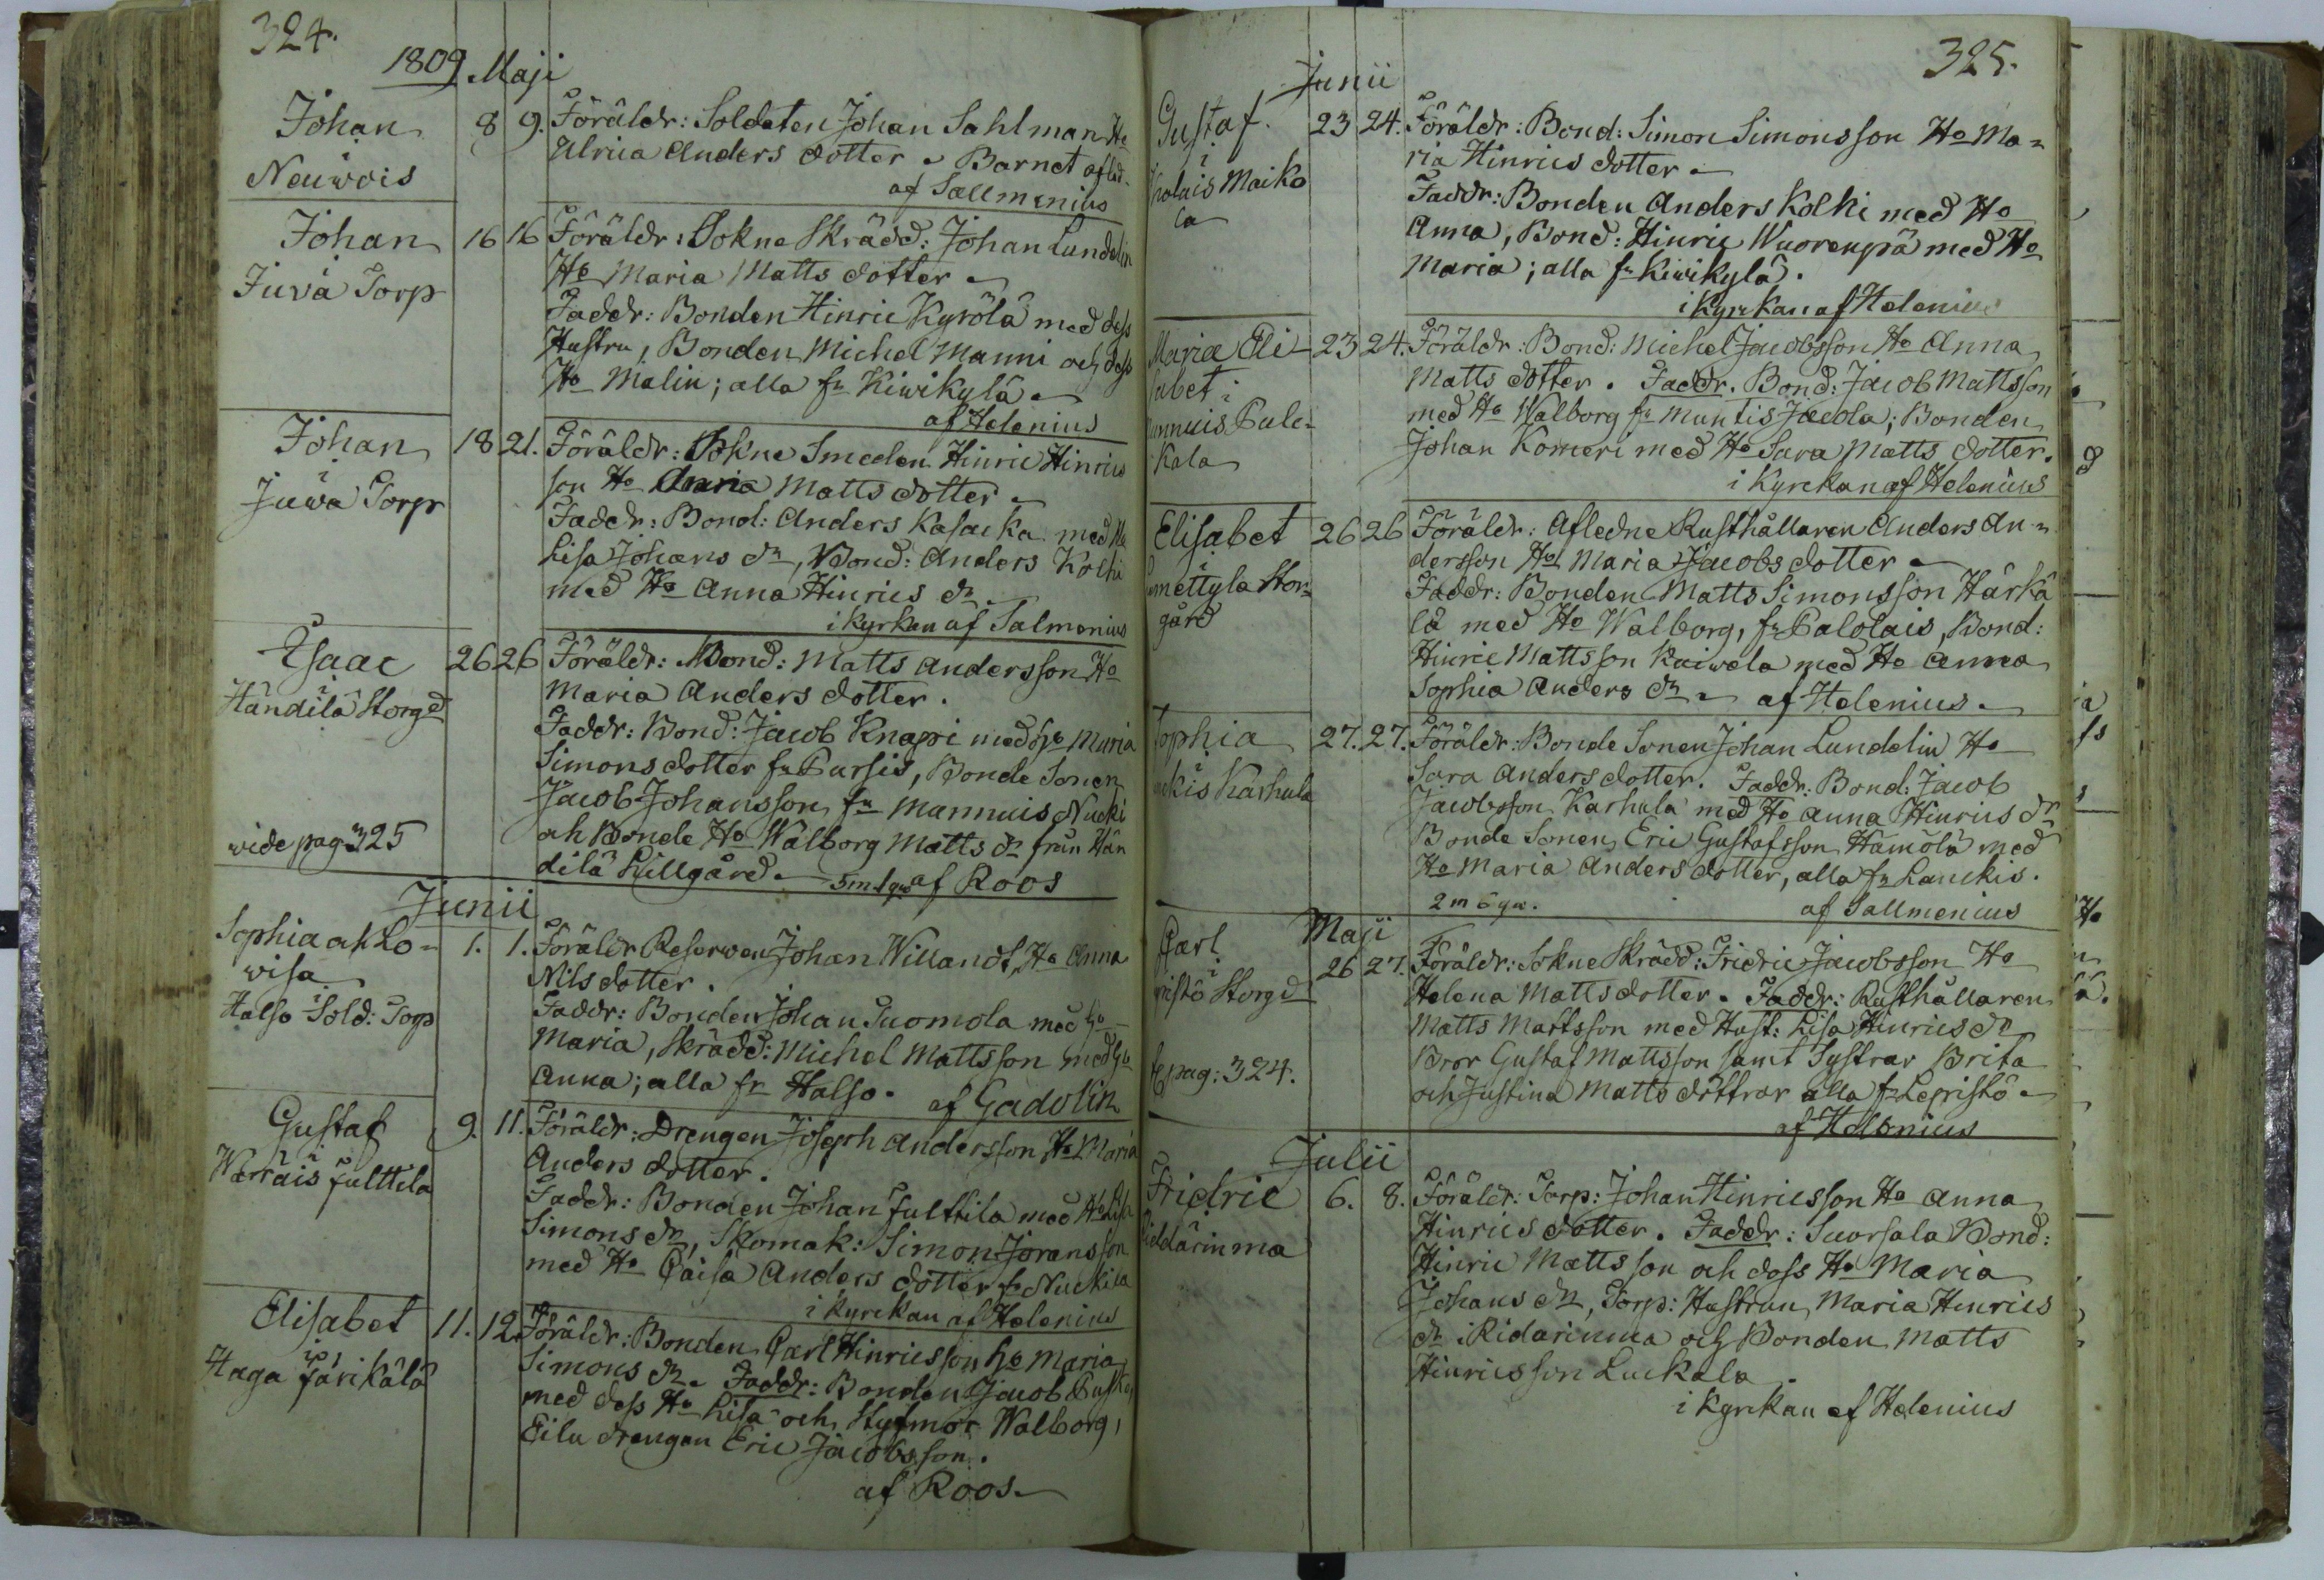 324.
1809. Maji
Johan 8 9. Föräldr: Soldaten Johan Sahlman Ho
Ulrica Anders dotter. Barnet afled.
Neuvois
af Sallmenius
Johan 16 16 Föräldr: Sokne Skrädd: Johan Lundelin
i
Ho Maria Matts dotter
Juva Torp
Faddr: Bonden Hinric Kyrölä med dess
Hustru, Bonden Michel Manni och dess
Ho Malin; alla fr Kiwikylä
af Helenius
Johan 18 21. Föräldr: Sokne Smeden Hinric Hinrics
i
son Ho Maria Matts dotter
Juwa Torp
Faddr: Bond: Anders Kasacka med Ho
Lisa Johans dr, Bond: Anders Kolhi
med Ho Anna Hinrics dr
i kyrkan af Salmenius
Isaac 26 26 Föräldr: Bond: Matts Andersson Ho
i
Maria Anders dotter.
Händilä Storgd
Faddr: Bond: Jacob Knapi med Ho Maria
Simons dotter fr Pursis, Bonde Sonen
Jacob Johansson fr Mannuis Nucki
wide pag 325
och Bonde Ho Walborg Matts dr från Hän
dilä Lillgård. 5m 1gw af Roos
Junii
Sophia och Lo= 1. 1. Föräldr Reserwen Johan Willandt, Ho Anna
wisa
Nils dotter.
i
Halso Sold: Torp
Faddr: Bonden Johan Tuomola med Ho
Maria, Skrädd: Michel Mattsson med Ho
Anna; alla fr Halso. af Gadolin
Gustaf 9. 11. Föräldr: Drengen Joseph Andersson Ho Maria
i
Anders dotter.
Warrais Julttila
Faddr: Bonden Johan Julttila med Ho Lisa
Simons dr, Skomak: Simon Jöransson
med Ho Caisa Anders dotter fr Nuckila
i kyrckan af Helenius
Elisabet 11. 12. Föräldr: Bonden Carl Hinricsson Ho Maria
i
Simons dr. Faddr: Bonden Jacob
Haga Järikälä
med dess Ho Lisa och Styfmor Walborg,
Eila drengen Eric Jacobsson.
af Roos.
325.
Junii
Gustaf. 23 24. Föräldr: Bond: Simon Simonsson Ho Ma=
i
ria Hinrics dotter
Maiko
la
Faddr: Bonden Anders Kolki med Ho
Anna, Bond: Hinric Wuorenpä med Ho
Maria; alla fr Kiwikylä.
i Kyrckan af Helenius
Maria Eli= 23 24. Föräldr: Bond: Michel Jacobsson Ho Anna
sabet i
Matts dotter. Faddr. Bond: Jacob Mattsson
Pule=
med Ho Walborg fr Muntis Jacola; Bonden
kala
Johan Komeri med Ho Sara Matts dotter.
i Kyrckan af Helenius
Elisabet 26 26 Föräldr: Afledne Rusthållaren Anders An=
i
dersson Ho Maria Jacobs dotter
mettyla Stor=
Faddr: Bonden Matts Simonsson Härkä
gård
lä med Ho Walborg, fr Palolais, Bond:
Hinric Mattsson Kaiwela med Ho Anna
Sophia Anders dr. af Helenius.
Sophia 27. 27. Föräldr: Bonde Sonen Johan Lundelin Ho
i
Sara Anders dotter. Faddr: Bond: Jacob
Karhula
Jacobsson Karhula med Ho Anna Hinrics dr
Bonde Sonen Eric Gustafsson Hämölä med
Ho Maria Anders dotter, alla fr Lauckis.
2 m 6 gw. af Sallmenius
Maji
Carl 26 27. Föräldr: Sokne Skrädd: Fridric Jacobsson Ho
i
ristö Storgd
Helena Matts dotter. Faddr: Rusthållaren
Matts Mattsson med Hust: Lisa Hinrics dr
Bror Gustaf Mattsson samt Systrar Brita
pag: 324.
och Justina Matts döttrar alla fr Lepristö
af Helenius
Julii
Fridric 6. 8. Föräldr: Torp: Johan Hinricsson Ho Anna
i
Hinrics dotter. Faddr: Suorsala Bond:
Riddarinma
Hinric Mattsson och dess Ho Maria
Johans dr, Torp: Hustrun Maria Henrics
dr i Ridarinma och Bonden Matts
Hinricsson Luckala.
i kyrckan af Helenius